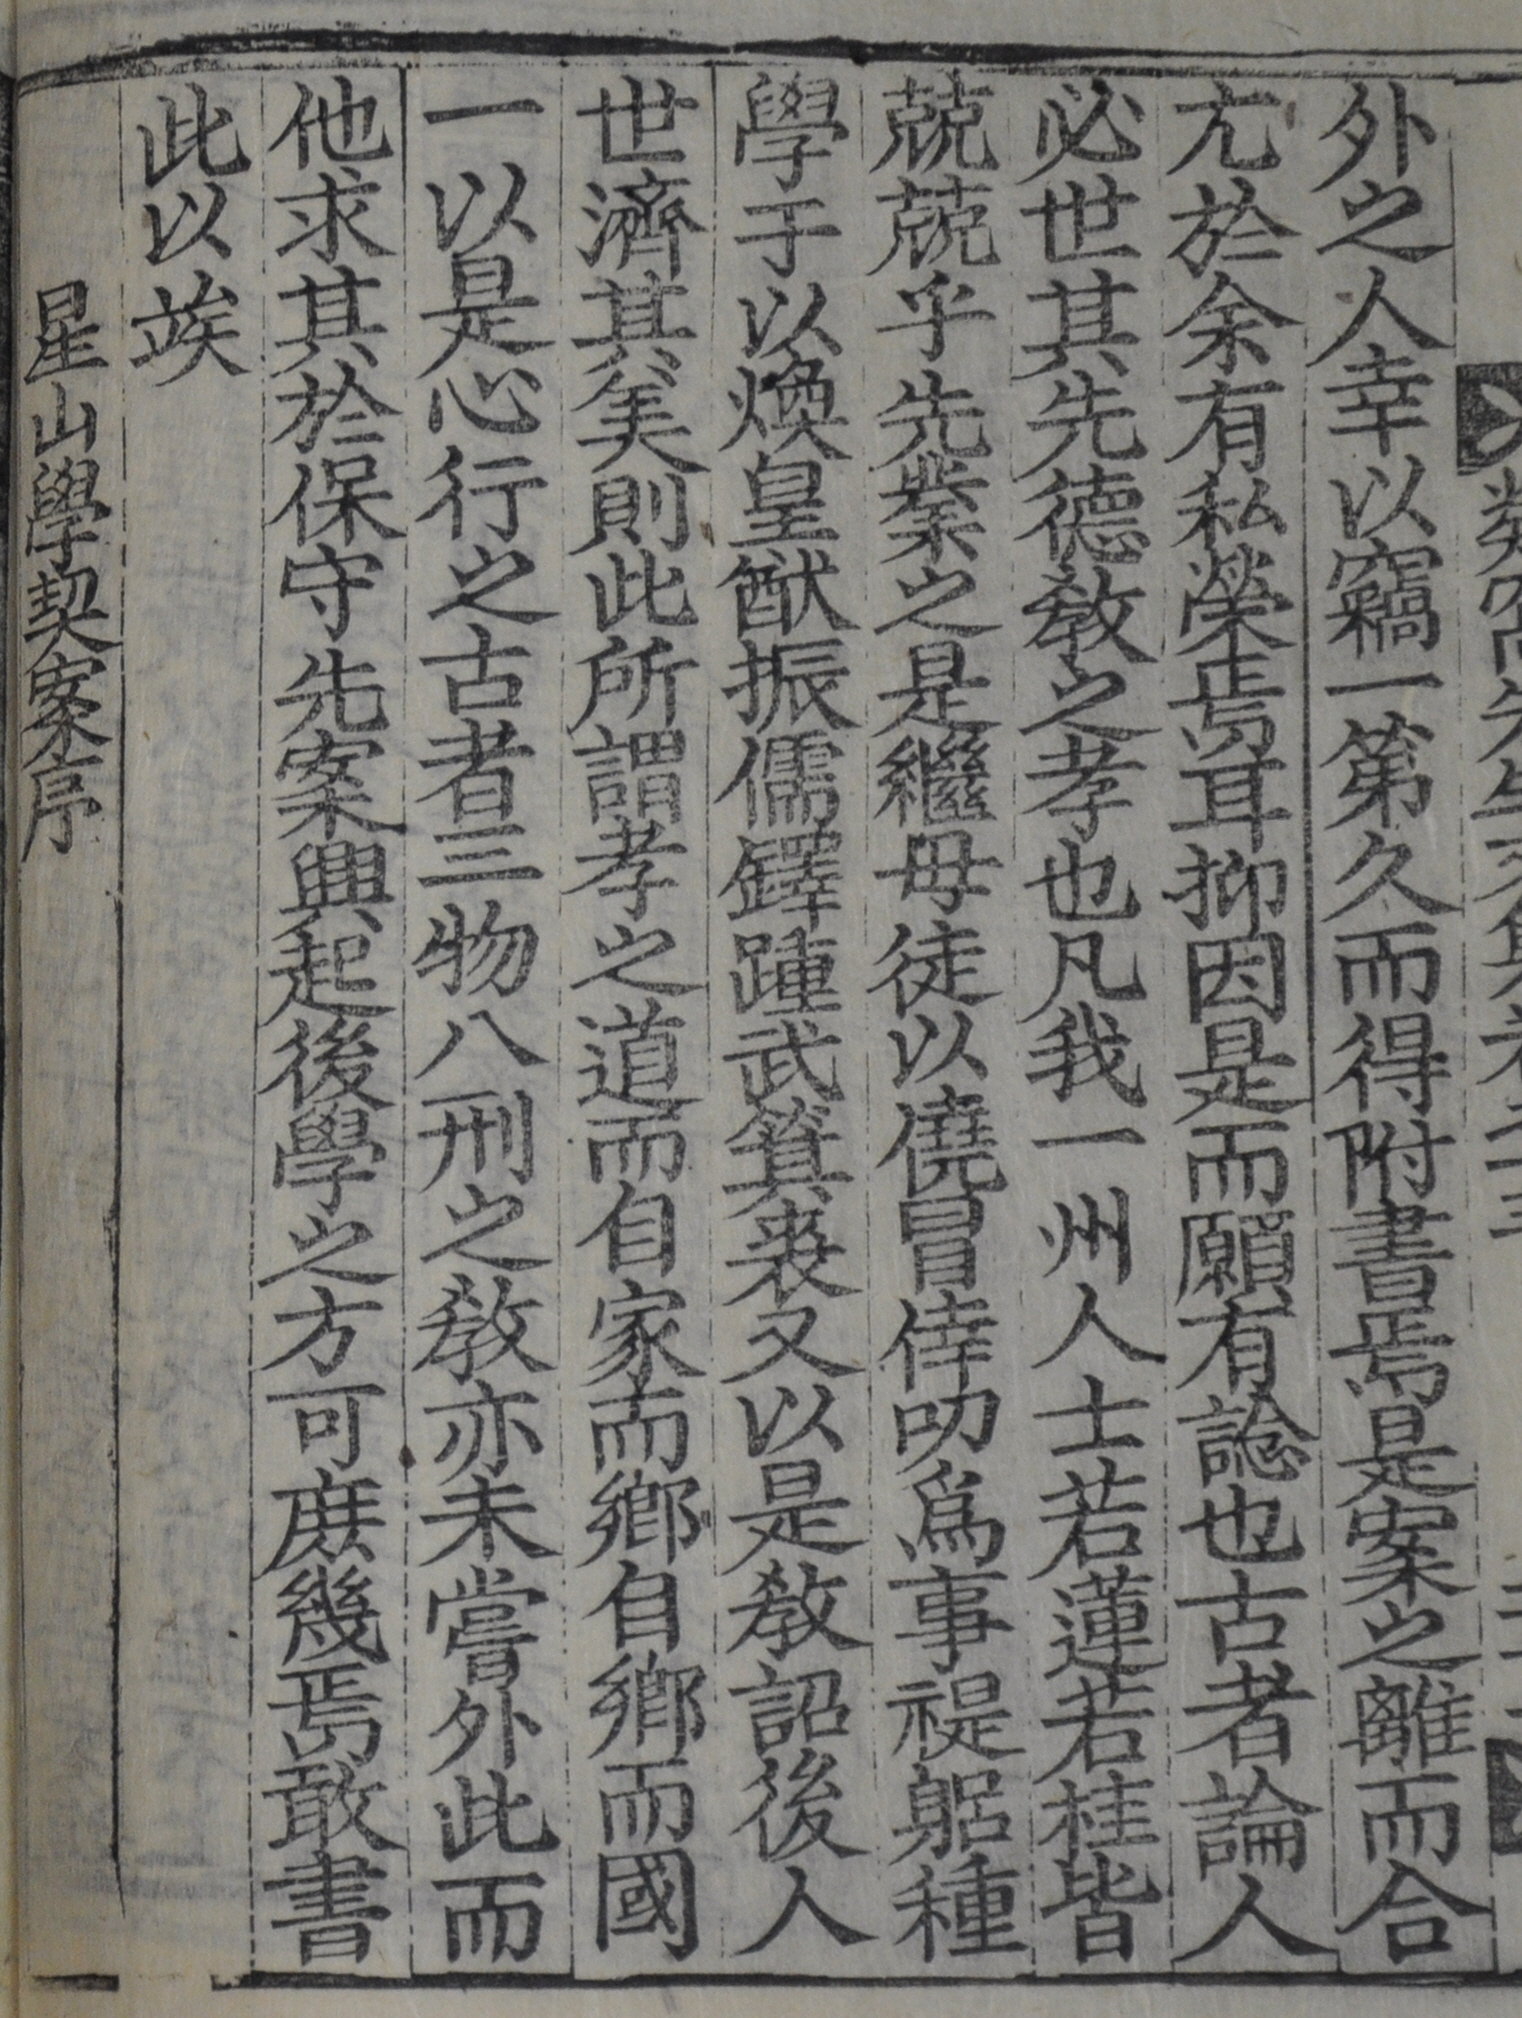 外之人幸以竊一第久而得附書焉是案之離而合
尤於余有私榮焉耳抑因是而願有諗也古者論人
必世其先德敎之孝也凡我一州人士若蓮若桂皆
兢兢乎先業之是繼毋徒以僥冒倖叨爲事禔躬種
學于以煥皇猷振儒鐸踵武箕裘又以是敎詔後人
世濟其美則此所謂孝之道而自家而鄉自鄉而國
一以是心行之古者三物八刑之敎亦未嘗外此而
他求其於保守先案興起後學之方可庶幾焉敢書
此以竢
星山學契案序